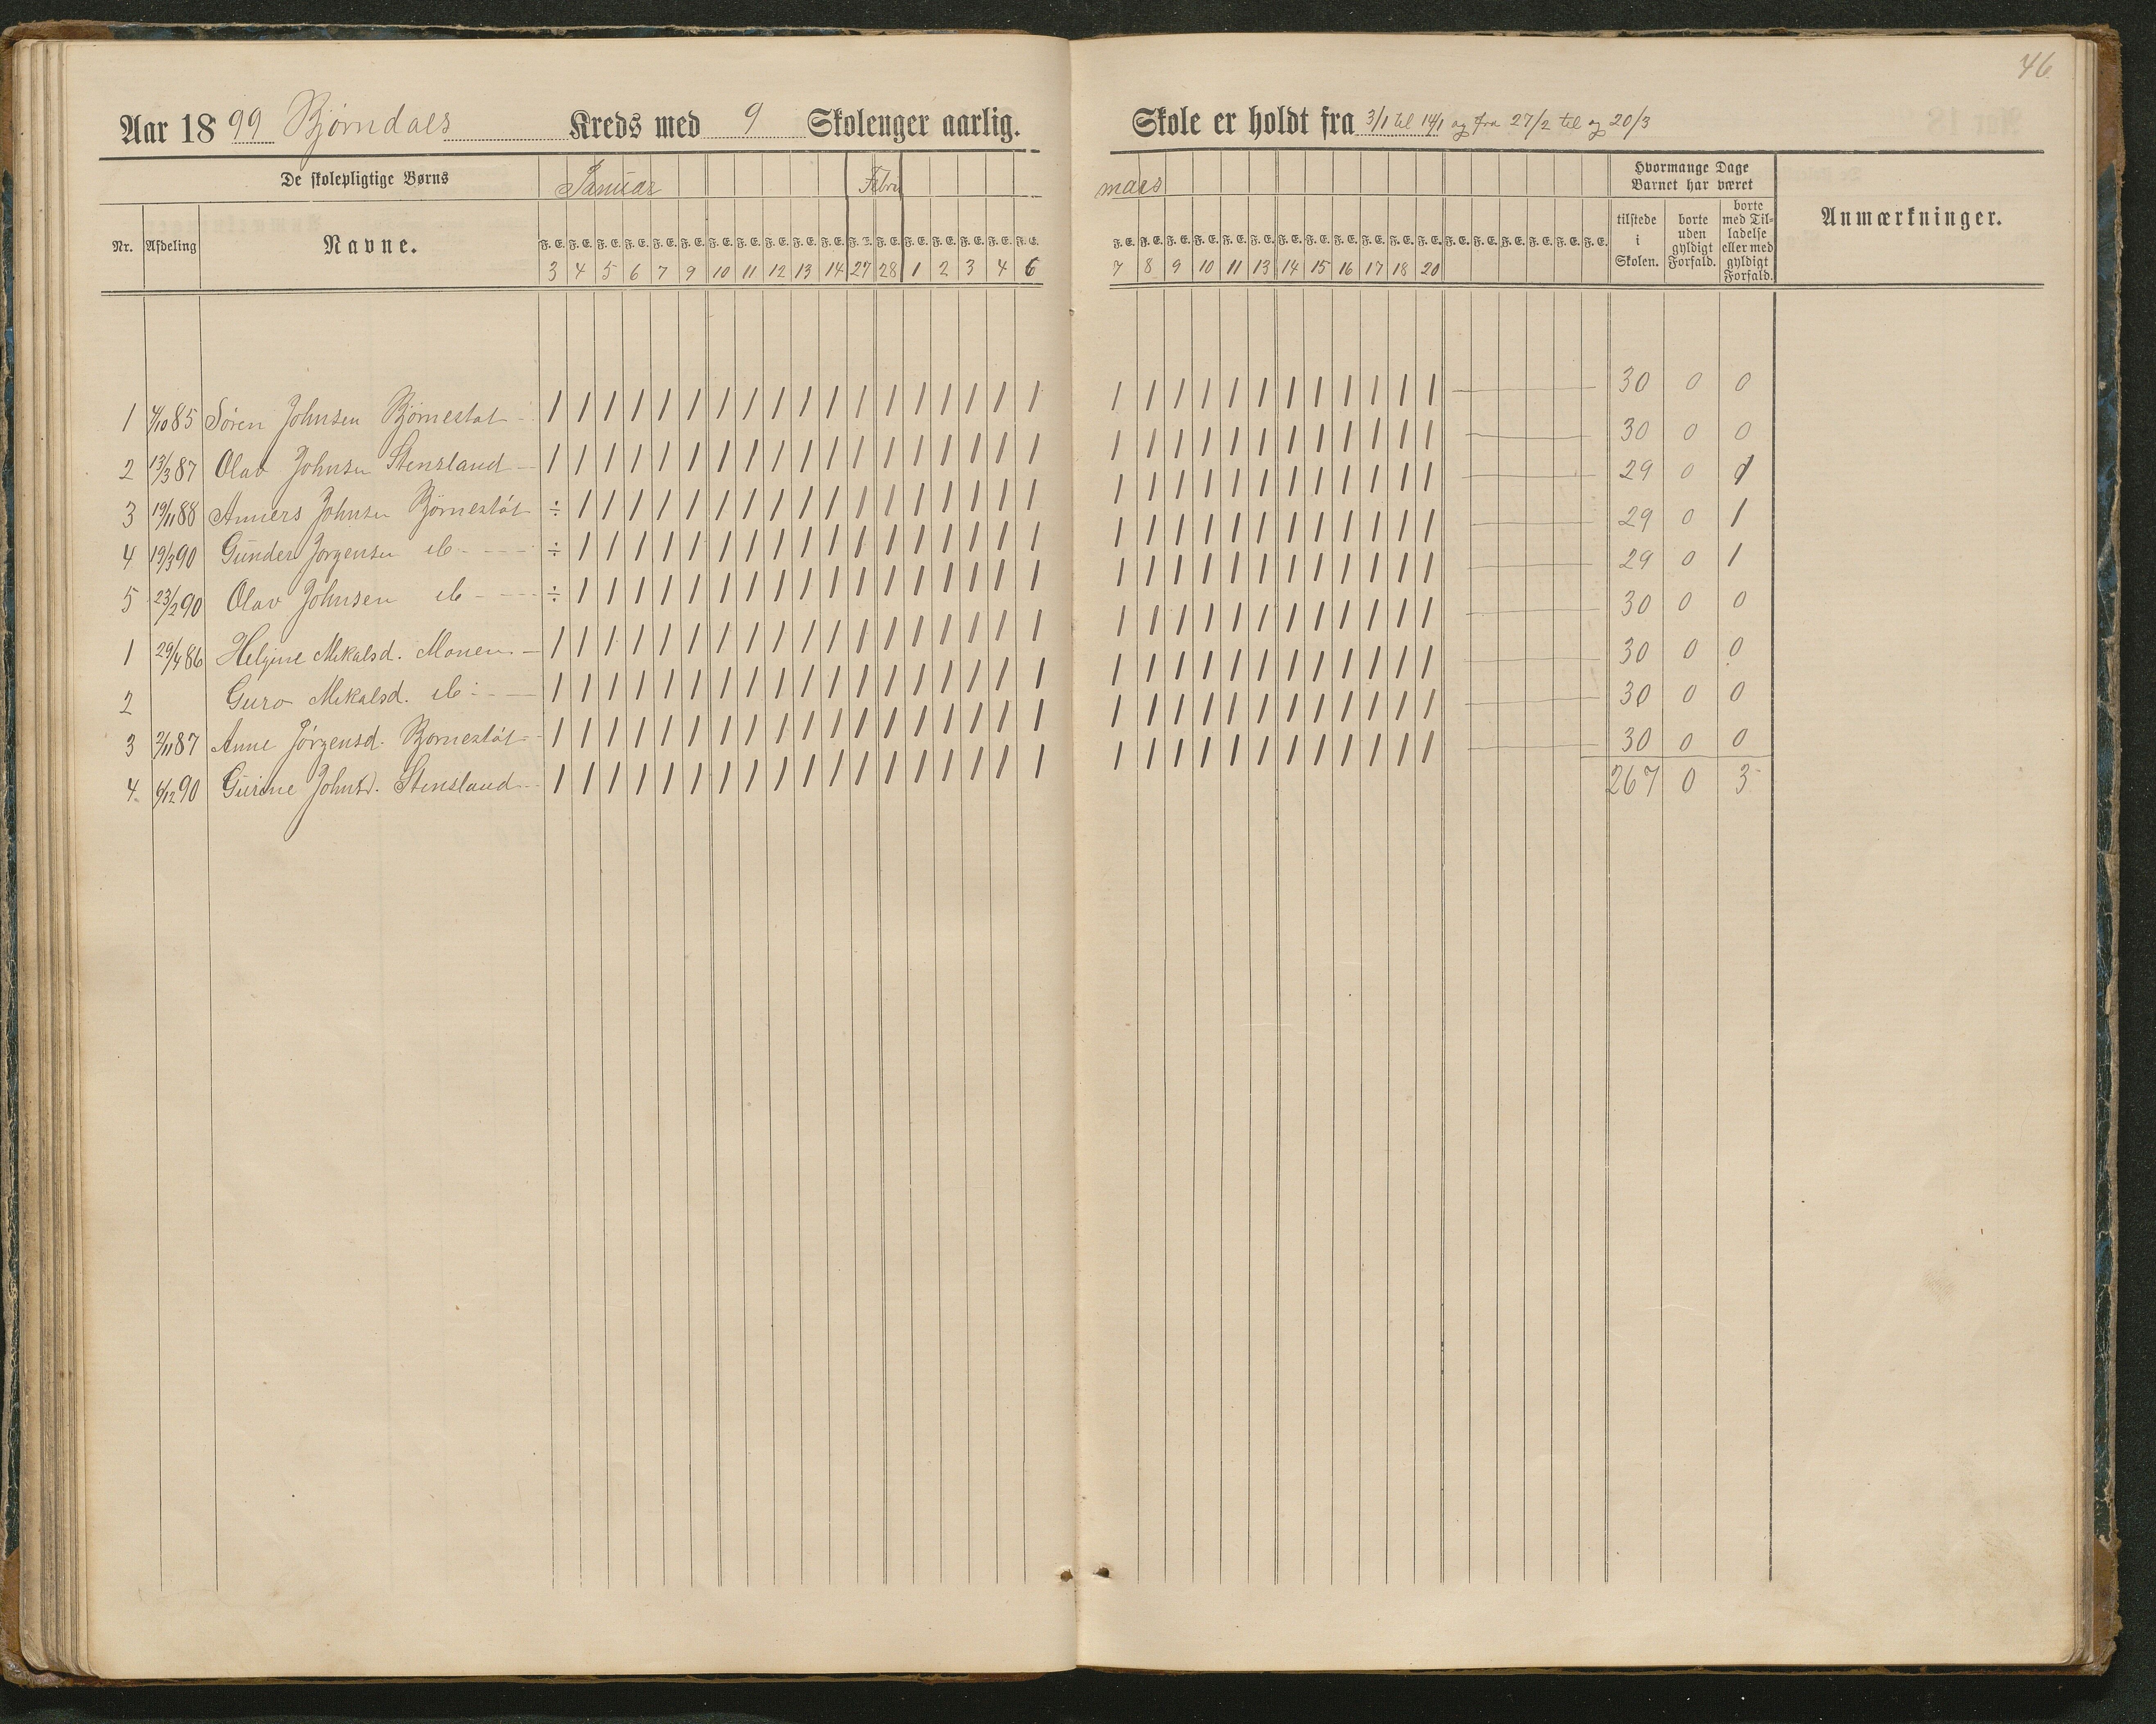 46
Aar 1899 Bjørndals Kreds med 9 Skoleuger aarlig.
Skole er holdt fra 3/1 til 14/1 og fra 27/2 til og 20/3
De skolepligtige Børns
Januar Febru
mars
Hvormange Dage Barnet har været
Nr. Afdeling Navne.
F. E. F. E. F. E. F. E. F. E. F. E. F. E. F. E. F. E. F. E. F. E. F. E. F. E. F. E. F. E. F. E. F. E. F. E.
3 4 5 6 7 9 10 11 12 13 14 27 28 1 2 3 4 6
F. E. F. E. F. E. F. E. F. E. F. E. F. E. F. E. F. E. F. E. F. E. F. E. F. E. F. E. F. E. F. E. F. E. F. E.
7 8 9 10 11 13 14 15 16 17 18 20
tilstede i Skolen.
borte uden gyldigt Forfald.
borte med Til-ladelse eller med gyldigt Forfald.
Anmærkninger.
1 4/10 85 Søren Johnsen Bjørnestøl 1 1 1 1 1 1 1 1 1 1 1 1 1 1 1 1 1 1 1 1 1 1 1 1 1 1 1 1 1 1 30 0 0
2 13/3 87 Olav Johnsen Stensland 1 1 1 1 1 1 1 1 1 1 1 1 1 1 1 1 1 1 1 1 1 1 1 1 1 1 1 1 1 1 30 0 0
3 19/11 88 Anners Johnsen Bjørnestøl ÷ 1 1 1 1 1 1 1 1 1 1 1 1 1 1 1 1 1 1 1 1 1 1 1 1 1 1 1 1 1 29 0 1
4 19/3 90 Gunder Jørgensen do ÷ 1 1 1 1 1 1 1 1 1 1 1 1 1 1 1 1 1 1 1 1 1 1 1 1 1 1 1 1 1 29 0 1
5 23/2 90 Olav Johnsen do ÷ 1 1 1 1 1 1 1 1 1 1 1 1 1 1 1 1 1 1 1 1 1 1 1 1 1 1 1 1 1 29 0 1
1 29/4 86 Helgine Mikalsd. Monen 1 1 1 1 1 1 1 1 1 1 1 1 1 1 1 1 1 1 1 1 1 1 1 1 1 1 1 1 1 1 30 0 0
2 Guro Mikalsd. do 1 1 1 1 1 1 1 1 1 1 1 1 1 1 1 1 1 1 1 1 1 1 1 1 1 1 1 1 1 1 30 0 0
3 2/11 87 Anne Jørgensd. Bjørnestøl 1 1 1 1 1 1 1 1 1 1 1 1 1 1 1 1 1 1 1 1 1 1 1 1 1 1 1 1 1 1 30 0 0
4 6/12 90 Gurine Johnsd. Stensland 1 1 1 1 1 1 1 1 1 1 1 1 1 1 1 1 1 1 1 1 1 1 1 1 1 1 1 1 1 1 30 0 0
267 0 3